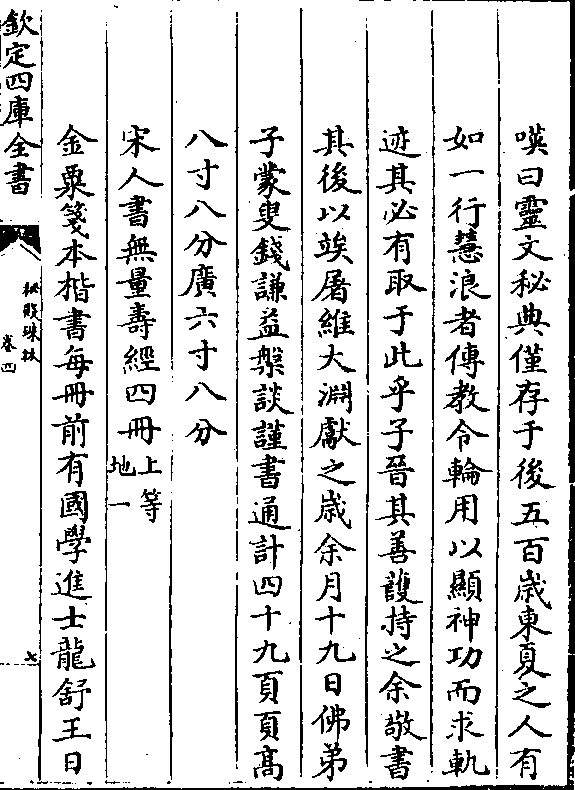 嘆曰靈文秘典僅存于後五百歳東夏之人有
如一行慧浪者傳教令輪用以顯神功而求軌
迹其必有取于此乎子晉其善護持之余敬書
其後以竢屠維大淵獻之歳余月十九日佛弟
子蒙叟錢謙益槃談謹書通計四十九頁頁髙
八寸八分廣六寸八分
宋人書無量壽經四冊上等地一
金粟箋本楷書每冊前有國學進士龍舒王日
欽定四庫全書
秘殿珠林
卷四
七